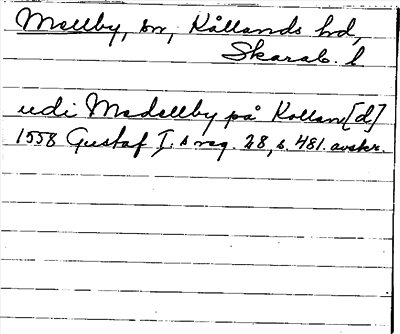 Mellby, sn, Kållands hd,
Skarab. l
udi Medellby på Kollan[d]
1558 Gustaf I:s reg. 28, s. 481. avskr.